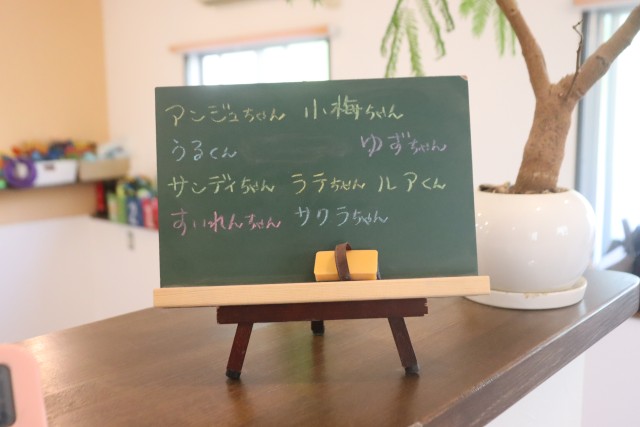 アンジュちゃん 小梅ちゃん
うるくん ゆずちゃん
サンディちゃん ラテちゃん ルアくん
すいれんちゃん サクラちゃん